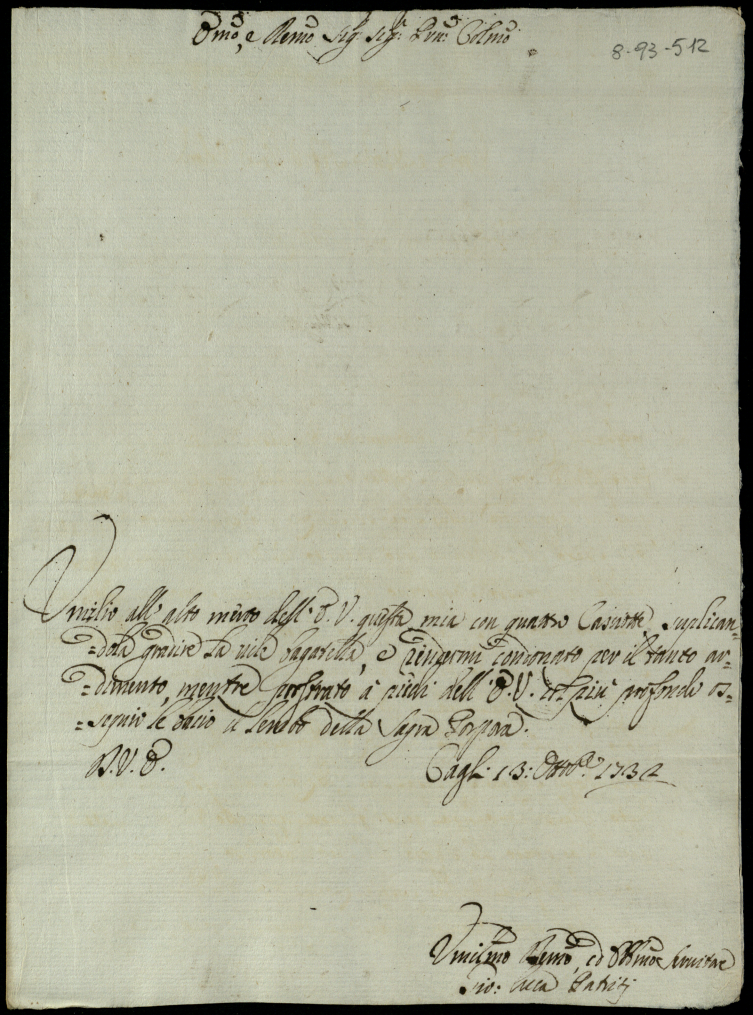 Emo, e Remo Sig: Sig: Prn: Colmo
8-93-512
Umilio all' alto merito dell' E. V. questa mia con quattro Casciotte, suplican=
=dola gradire la vile bagatella, e tenermi condonato per il tanto ar=
=dimento, mentre prostrato à piedi dell' E. V. col più profondo os=
=sequio le bacio il lembo della Sagra Porpora.
D. V. E.
Cagli 13: Ottobre 1732
Umilmo Devmo, ed Obbmo Servitore
Gio: Luca Patrizi